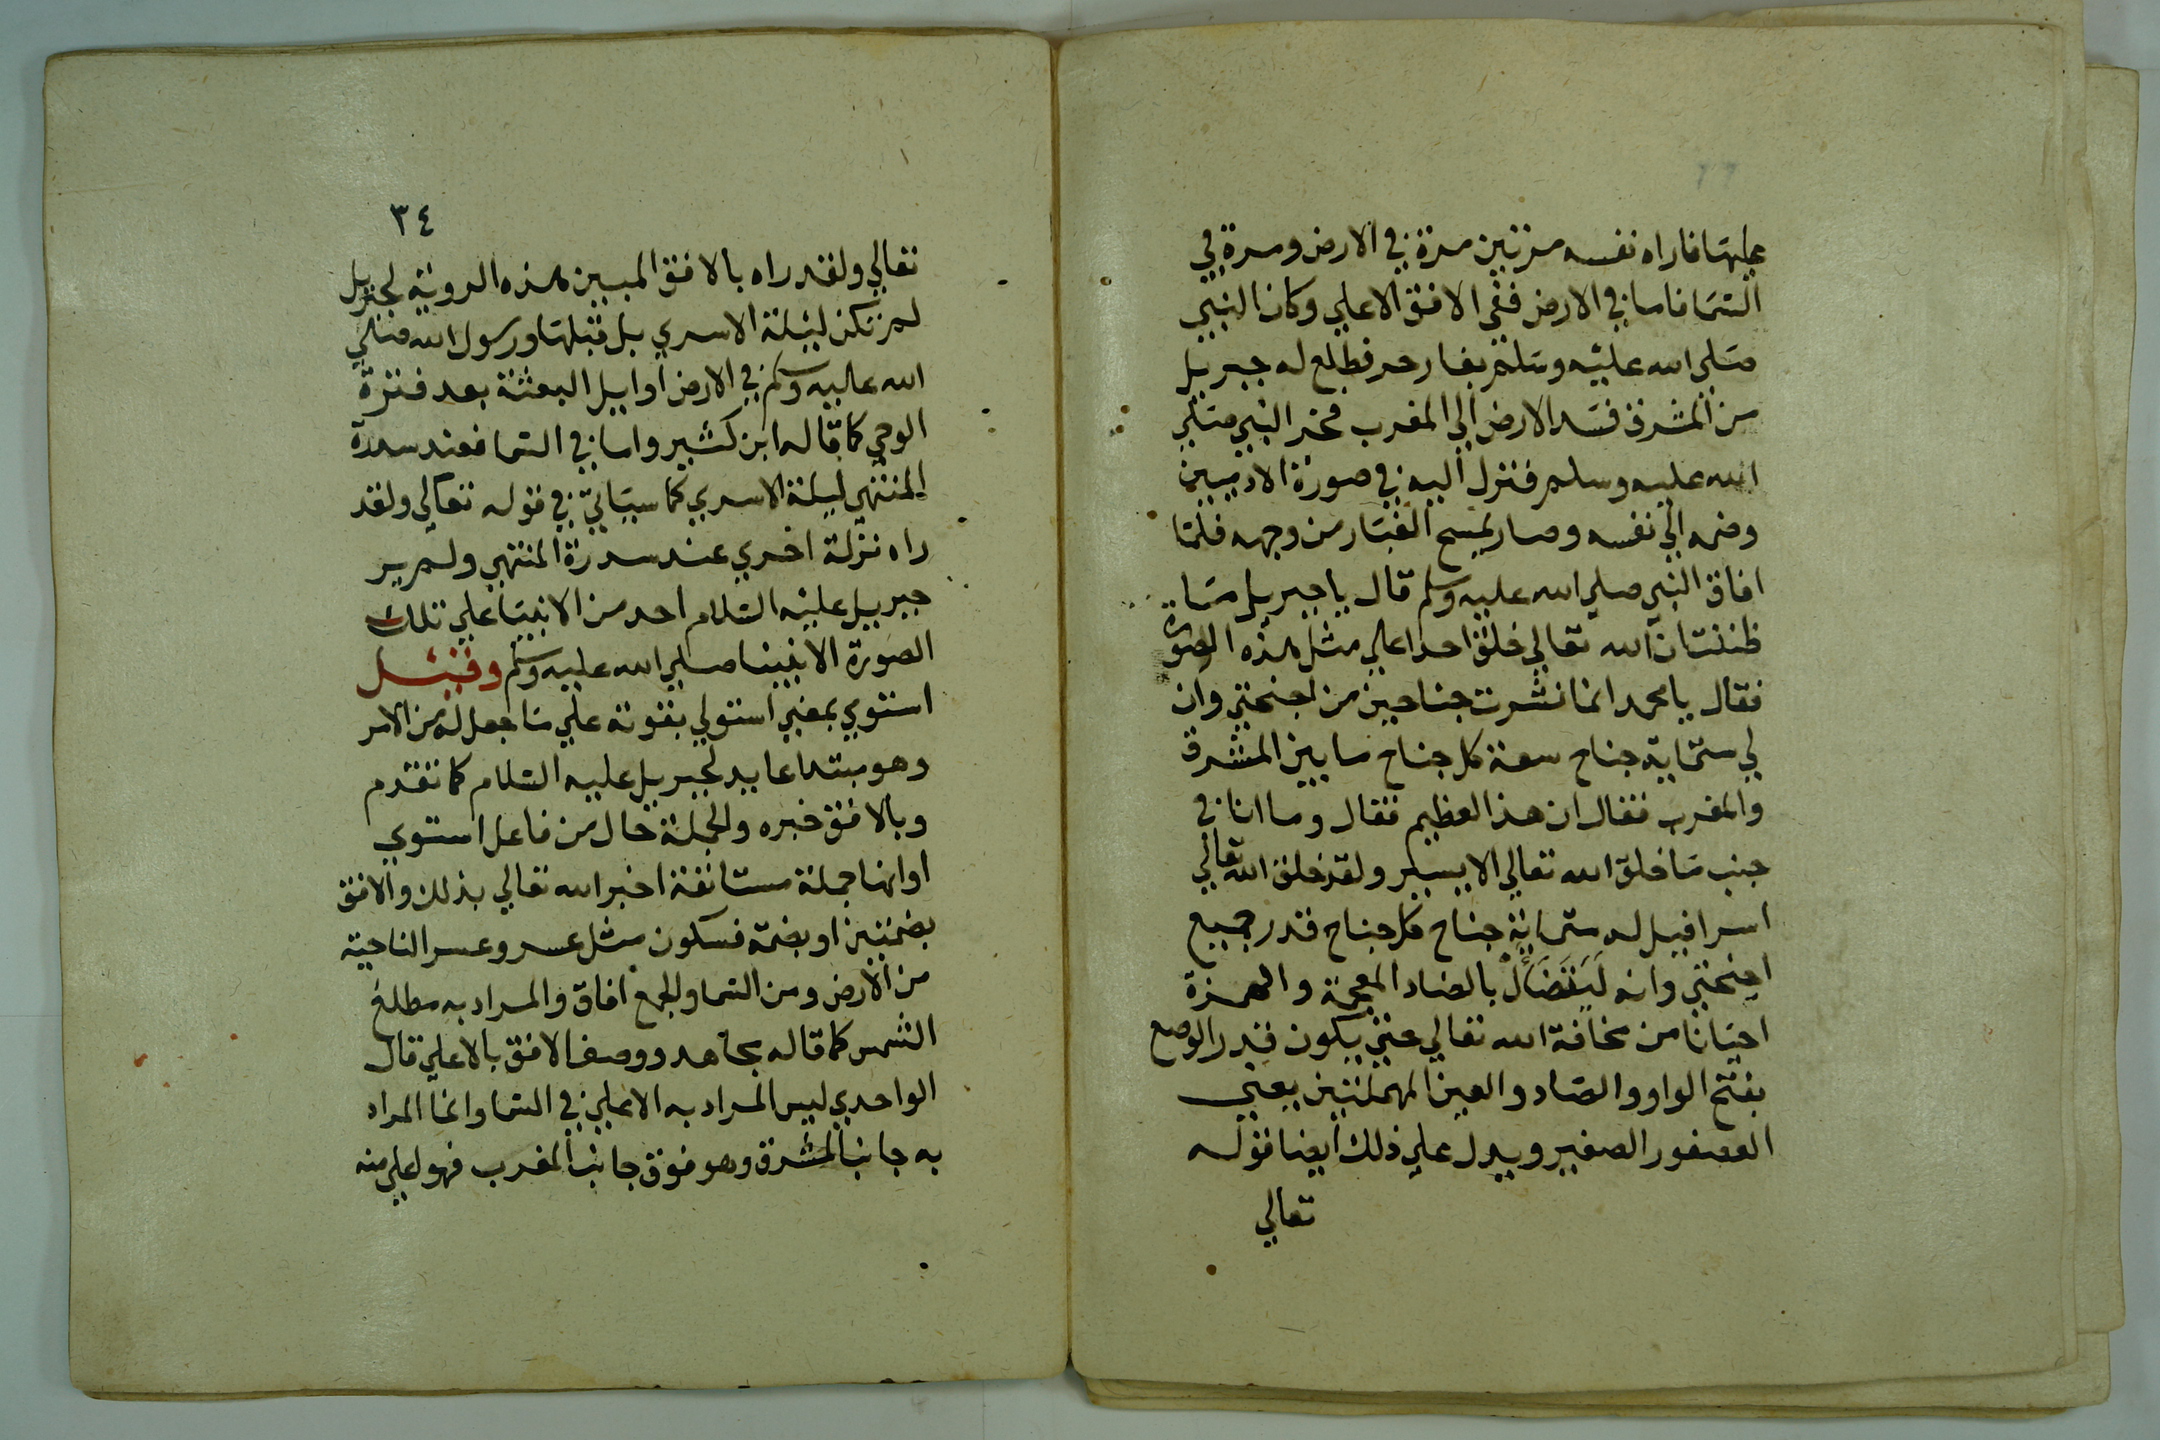 عليها فاراه نفسه مرتين مرة في الارض ومرة في
السما فاما في الارض ففي الافق الاعلي وكان النبي
صلي الله عليه وسلم بغار حر فطلع له جبريل
من المشرق فسد الارض الي المغرب فخر النبي صلي
الله عليه وسلم فنزل اليه في صورة الادميين
وضمه الي نفسه وصار يمسح الغبار من وجهه فلما
افاق النبي صلي الله عليه وسلم قال يا جبريل ما
ظننت ان الله تعالي خلق احدا علي مثل هذه الصورة
فقال يا محمد انما نشرت جناحين من اجنحتي وان
لي ستماية جناح سعة كل جناح ما بين المشرق
والمغرب فقال ان هذا لعظيم فقال وما انا في
جنب ما خلق الله تعالي الا يسير ولقد خلق الله تعالي
اسرافيل له ستماية جناح كل جناح قدر جميع
اجنحتي وانه لَيَتَضَأَلُ بالضاد المعجمة والهمزة
احيانا من مخافة الله تعالي حتي يكون قدر الوصع
بفتح الواو والصاد والعين المهملتين يعني
العصفور الصغير ويدل علي ذلك ايضا قوله
تعالي
٣٤
تعالي ولقد راه بالافق المبين هذه الروية لجبريل
لم تكن ليلة الاسري بل قبلها ورسول الله صلي
الله عليه وسلم في الارض اوايل البعثة بعد فترة
الوحي كما قاله ابن كثير واما في السما فعند سدرة
المنتهي ليلة الاسري كما سياتي في قوله تعالي ولقد
راه نزلة اخري عند سدرة المنتهي ولم ير
جبريل عليه السلام احد من الانبيا علي تلك
الصورة الا نبينا صلي الله عليه وسلم وقيل
استوي بمعني استولي بقوته علي ما جعل له من الامر
وهو مبتدا عايد لجبريل عليه السلام كما تقدم
وبالافق خبره والجملة حال من فاعل استوي
او انها جملة مستانفة اخبر الله تعالي بذلك والافق
بضمتين او بضمة فسكون مثل عسر وعسر الناحية
من الارض ومن السما والجمع افاق والمراد به مطلع
الشمس كما قاله مجاهد ووصف الافق بالاعلي قال
الواحدي ليس المراد به الاعلي في السما وانما المراد
به جانب المشرق وهو فوق جانب المغرب فهو اعلي منه